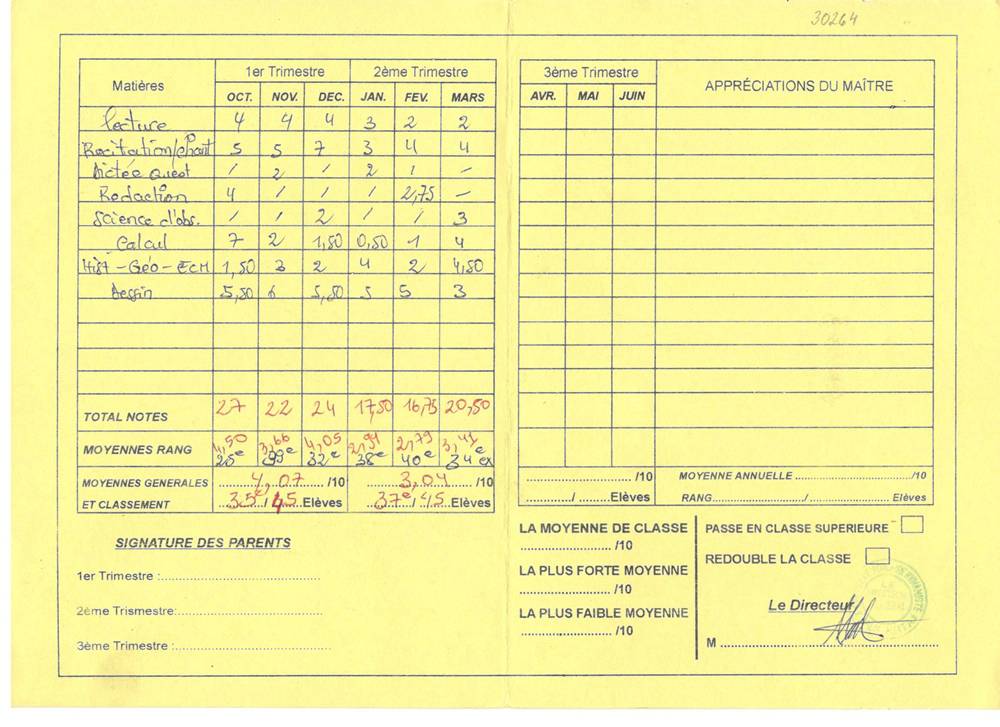 30264
Matières 1er Trimestre 2ème Trimestre
OCT. NOV. DEC. JAN. FEV. MARS
lecture 4 4 4 3 2 2
Recitation/chant 5 5 7 3 4 4
Dictée Quest / 2 / 2 / -
Redaction 4 / / / 2,75 -
Science d'obs. / / 2 / / 3
Calcul 7 2 1,50 0,50 1 4
Hist - Géo - ECM 1,50 3 2 4 2 4,50
Dessin 5,50 6 5,50 5 5 3
TOTAL NOTES 27 22 24 17,50 16,75 20,50
MOYENNES RANG 4,50 3,66 4,05 2,91 2,79 3,41
25e 32e 38e 40e 34 ex
MOYENNES GENERALES 4,07 /10 3,04 /10
ET CLASSEMENT 35e / 45 Elèves 37e / 45 Elèves
SIGNATURE DES PARENTS
1er Trimestre :
2ème Trismestre:
3ème Trimestre :
3ème Trimestre APPRÉCIATIONS DU MAÎTRE
AVR. MAI JUIN
/10 MOYENNE ANNUELLE /10
/ Elèves RANG / Elèves
LA MOYENNE DE CLASSE
/10
LA PLUS FORTE MOYENNE
/10
LA PLUS FAIBLE MOYENNE
/10
PASSE EN CLASSE SUPERIEURE
REDOUBLE LA CLASSE
Le Directeur
M